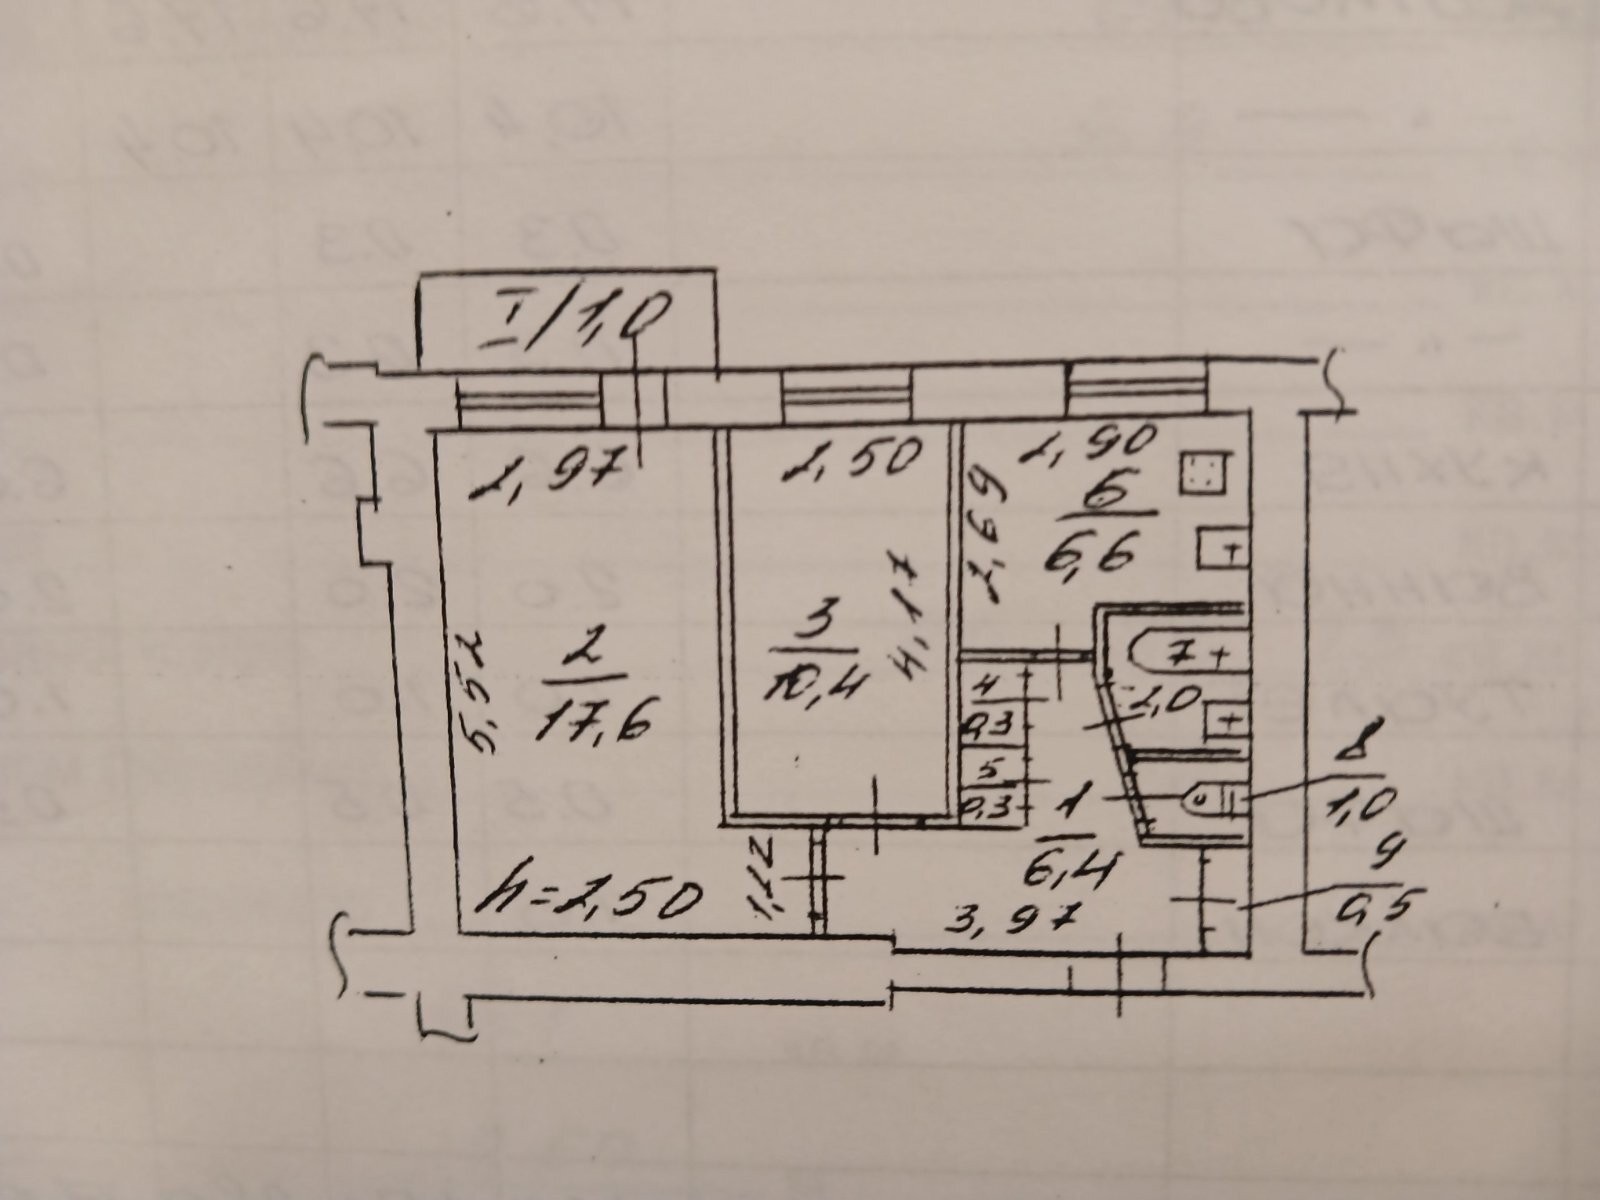 I/1,0
2,97
2,50
2,90
2,69
6
6,6
4,17
3
10,4
5,52
2
17,6
7
2,0
4
0,3
5
0,3
8
1,0
1
6,4
9
0,5
1,12
h=2,50
3,97